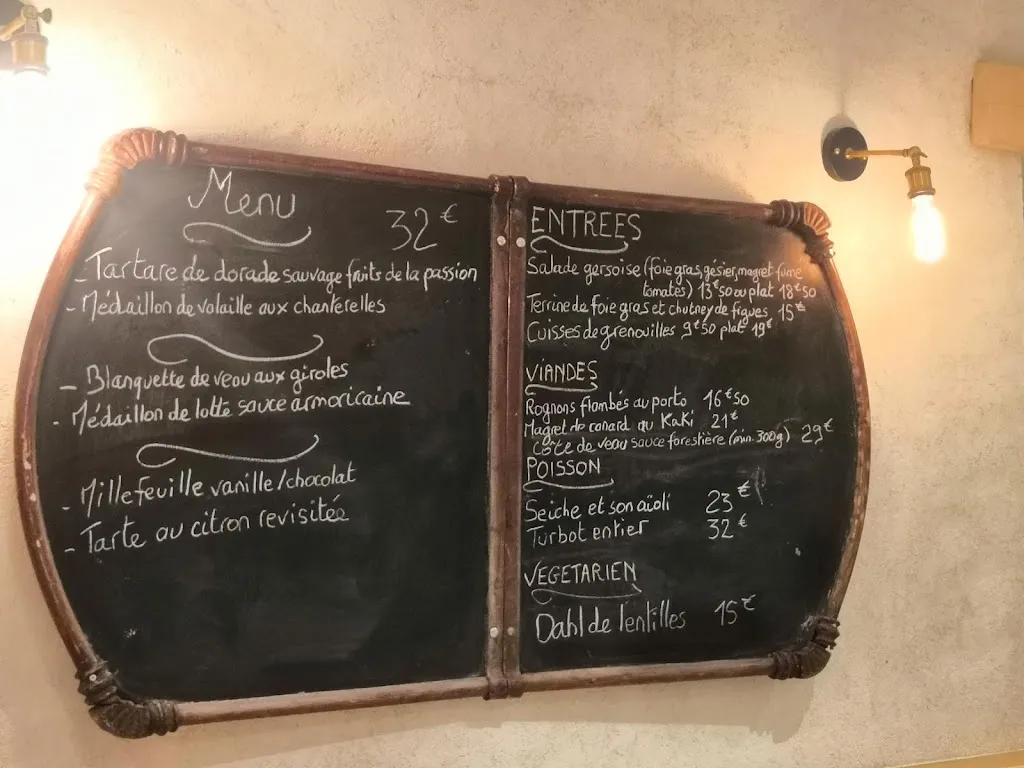 Menu
32€
- Tartare de dorade sauvage fruits de la passion
- Médaillon de volaille aux chanterelles
- Blanquette de veau aux giroles
- Médaillon de lotte sauce armoricaine
- Millefeuille vanille/chocolat
- Tarte au citron revisitée
ENTREES
Salade gersoise (foie gras, gésier, magret fumé
tomates) 13€50 ou plat 18€50
Terrine de foie gras et chutney de figues 15€
Cuisses de grenouilles 9€50 plat 19€
VIANDES
Rognons flambés au porto 16€50
Magret de canard au KaKi 21€
Côte de veau sauce forestière (min. 300g) 29€
POISSON
Seiche et son aïoli 23€
Turbot entier 32€
VEGETARIEN
Dahl de lentilles 15€